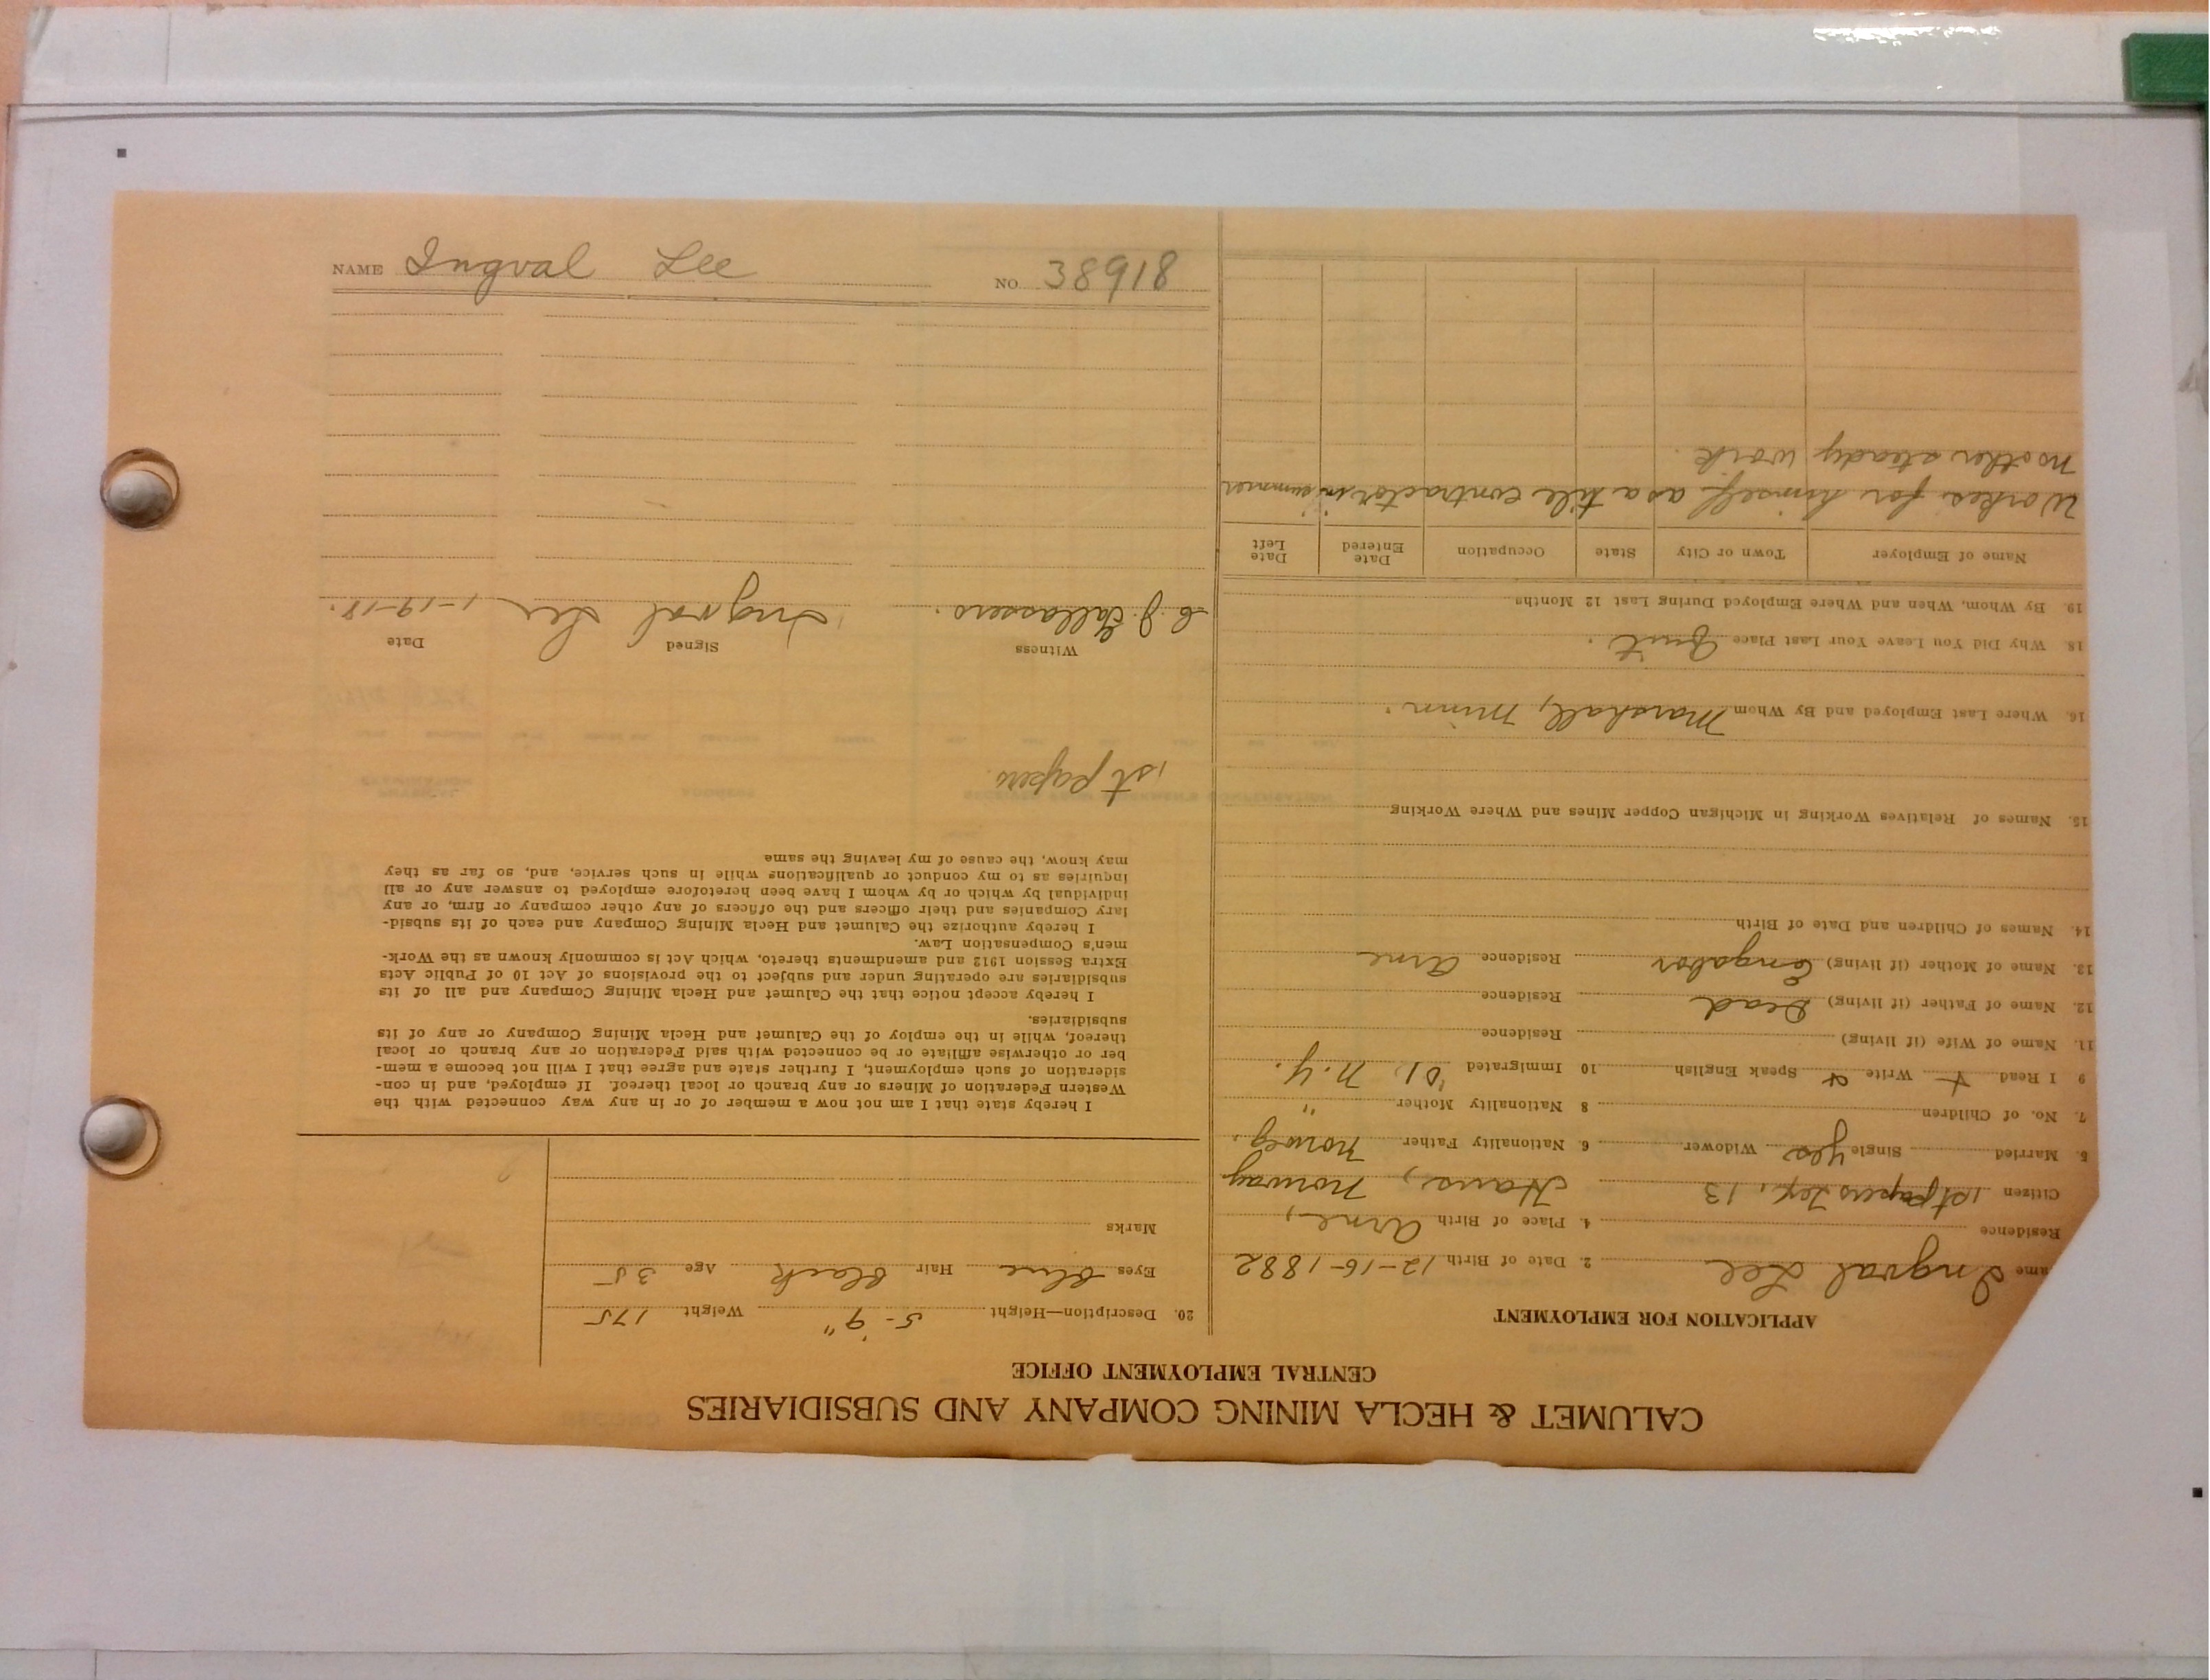 CALUMET & HECLA MINING COMPANY AND SUBSIDIARIES
CENTRAL EMPLOYMENT OFFICE
APPLICATION FOR EMPLOYMENT
ame Ingval Lee 2. Date of Birth 12-16-1882
Residence 4. Place of Birth Arne,
Citizen 1st papers Tex, 13 Haus, Norway
5. Married Single Yes Widower 6. Nationality Father Norweg.
7. No. of Children 8 Nationality Mother "
9 I Read + Write + Speak English 10 Immigrated '01 N.Y.
11. Name of Wife (if living) Residence
12. Name of Father (if living) Dead Residence
13. Name of Mother (if living) Residence Arne
14. Names of Children and Date of Birth
15. Names of Relatives Working in Michigan Copper Mines and Where Working
16. Where Last Employed and By Whom Marshall, Minn.
18. Why Did You Leave Your Last Place Quit.
19. By Whom, When and Where Employed During Last 12 Months
Name of Employer Town or City State Occupation Date Entered Date Left
Workes for himself as a tile contractor in summer
no other steady work.
20. Description—Height 5-9" Weight 175
Eyes Blue Hair Black Age 35
Marks
I hereby state that I am not now a member of or in any way connected with the
Western Federation of Miners or any branch or local thereof. If employed, and in con-
sideration of such employment, I further state and agree that I will not become a mem-
ber or otherwise affiliate or be connected with said Federation or any branch or local
thereof, while in the employ of the Calumet and Hecla Mining Company or any of its
subsidiaries.
I hereby accept notice that the Calumet and Hecla Mining Company and all of its
subsidiaries are operating under and subject to the provisions of Act 10 of Public Acts
Extra Session 1912 and amendments thereto, which Act is commonly known as the Work-
men's Compensation Law.
I hereby authorize the Calumet and Hecla Mining Company and each of its subsid-
iary Companies and their officers and the officers of any other company or firm, or any
individual by which or by whom I have been heretofore employed to answer any or all
inquiries as to my conduct or qualifications while in such service, and, so far as they
may know, the cause of my leaving the same
1st papers
Witness Signed Date
C. J. Ingval Lee 1-19-18.
NAME Ingval Lee NO. 38918